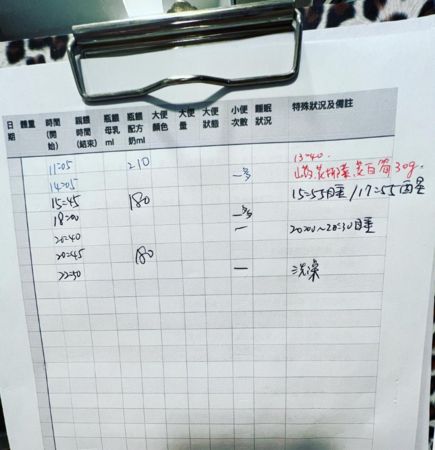 日期 體重 時間(開始) 親餵時間(結束) 瓶餵母乳ml 瓶餵配方奶ml 大便顏色 大便量 大便狀態 小便次數 睡眠狀況 特殊狀況及備註
11:05 210 13:40
14:05 一多 30g
15:45 180 15:55 / 17:55
18:00 一多
20:40 一
20:45 180
22:50 一 洗澡